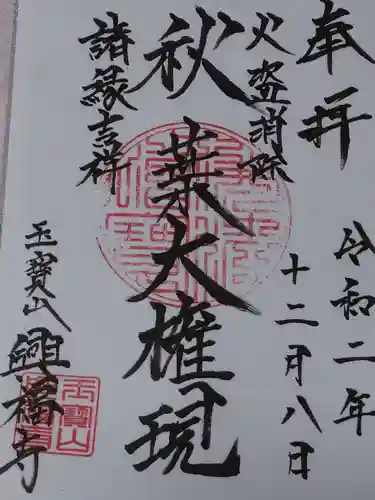 奉拝
令和二年
十二月八日
火盗消除
秋葉大権現
諸縁吉祥
玉寶山
興福寺